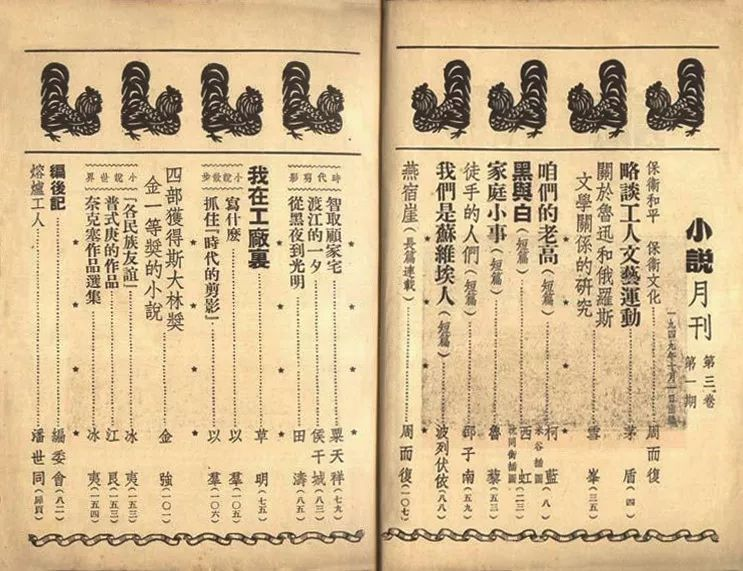 小說月刊
第三卷
第一期
一九四九年七月一日出版
保衛和平 保衛文化……周而復
略談工人文藝運動……茅盾（四）
關於魯迅和俄羅斯
文學關係的研究……雪峯（三五）
咱們的老高（短篇）……柯藍（八）
米谷插圖
黑與白（短篇）……西虹（二三）
沈同衡插圖
家庭小事（短篇）……魯藜（五三）
徒手的人們（短篇）……邱子南（五九）
我們是蘇維埃人（短篇）……波列伏依（八八）
燕宿崖（長篇連載）……周而復（一〇七）
時代剪影
智取顧家宅……粟天祥（七九）
渡江的一夕……侯干城（八三）
從黑夜到光明……田濤（八五）
我在工廠裏……草明（七五）
小說散步
寫什麽……以羣
抓住『時代的剪影』……以羣（一〇六）
四部獲得斯大林獎
金一等獎的小說……金強（一〇一）
小說世界
「各民族友誼」……冰夷（一五三）
普式庚的作品……江艮（一五三）
奈克塞作品選集……冰夷（一五四）
編後記……編委會（八二）
熔爐工人……潘世同（扉頁）